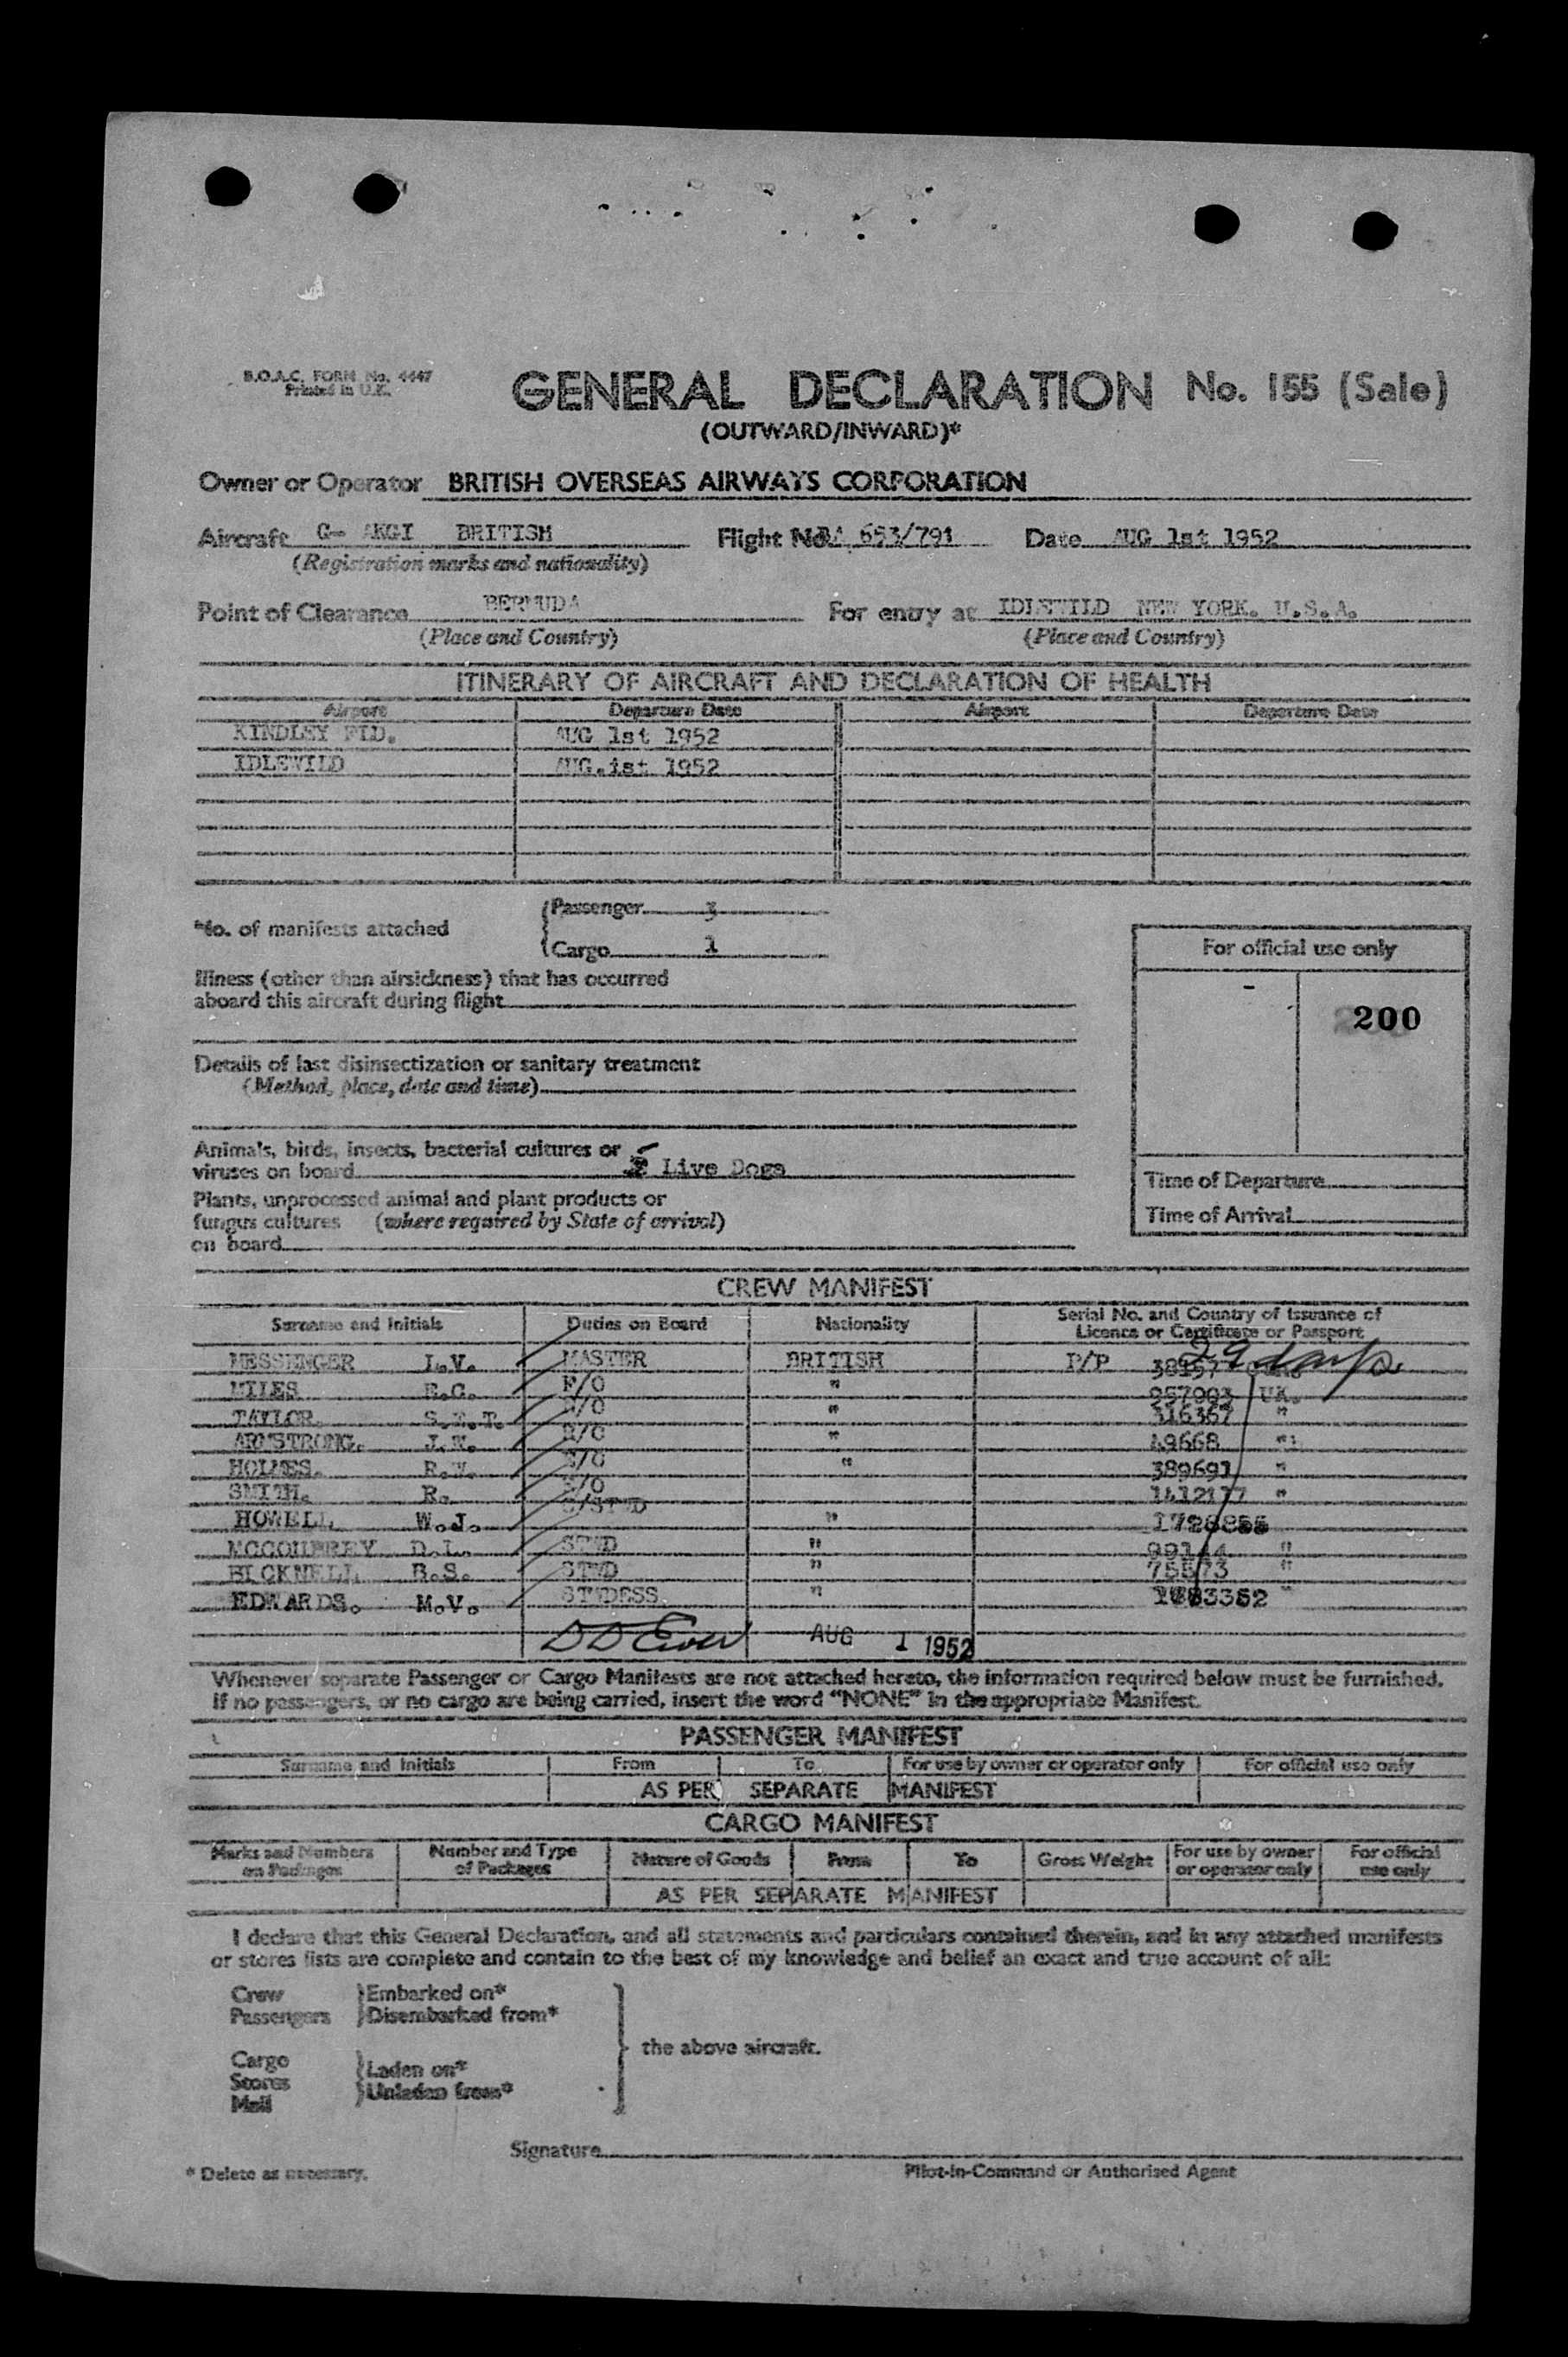 B.O.A.C. FORM No. 4447
Printed in U.K.
GENERAL DECLARATION No. 155 (Sale)
(OUTWARD/INWARD)*
Owner or Operator BRITISH OVERSEAS AIRWAYS CORPORATION
Aircraft G- AKGI BRITISH Flight No. BA 653/791 Date AUG 1st 1952
(Registration marks and nationality)
Point of Clearance BERMUDA For entry at IDLEWILD NEW YORK. U.S.A.
(Place and Country) (Place and Country)
ITINERARY OF AIRCRAFT AND DECLARATION OF HEALTH
Airport Departure Date Airport Departure Date
KINDLEY FLD. AUG 1st 1952
IDLEWILD AUG.ist 1952
*No. of manifests attached
Passenger 3
Cargo 1
For official use only
Illness (other than airsickness) that has occurred
aboard this aircraft during flight
200
Details of last disinsectization or sanitary treatment
(Method, place, date and time)
Animals, birds, insects, bacterial cultures or
viruses on board Live Dogs
Time of Departure
Plants, unprocessed animal and plant products or
fungus cultures (where required by State of arrival)
on board
Time of Arrival
CREW MANIFEST
Surname and Initials Duties on Board Nationality Serial No. and Country of Issuance of
Licence or Certificate or Passport
MESSENGER L.V. MASTER BRITISH P/P 29 days
MILES E.C. F/O " UK.
TAYLOR " 316367 "
ARMSTRONG. " 49668 "
HOLMES. " 389691 "
SMITH. R. "
HOWELL W.J. " 1728855
D.L. STWD " "
BICKNELL R.S. STWD " "
EDWARDS. M.V. STWDESS " "
AUG 1 1952
Whenever separate Passenger or Cargo Manifests are not attached hereto, the information required below must be furnished.
If no passengers, or no cargo are being carried, insert the word "NONE" in the appropriate Manifest.
PASSENGER MANIFEST
Surname and Initials From To For use by owner or operator only For official use only
AS PER SEPARATE MANIFEST
CARGO MANIFEST
Marks and Numbers on Packages Number and Type of Packages Nature of Goods From To Gross Weight For use by owner or operator only For official use only
AS PER SEPARATE MANIFEST
I declare that this General Declaration, and all statements and particulars contained therein, and in any attached manifests
or stores lists are complete and contain to the best of my knowledge and belief an exact and true account of all:
Crew Embarked on*
Passengers Disembarked from*
the above aircraft.
Cargo Laden on*
Stores Unladen from*
Mail
Signature
* Delete as necessary. Pilot-in-Command or Authorised Agent